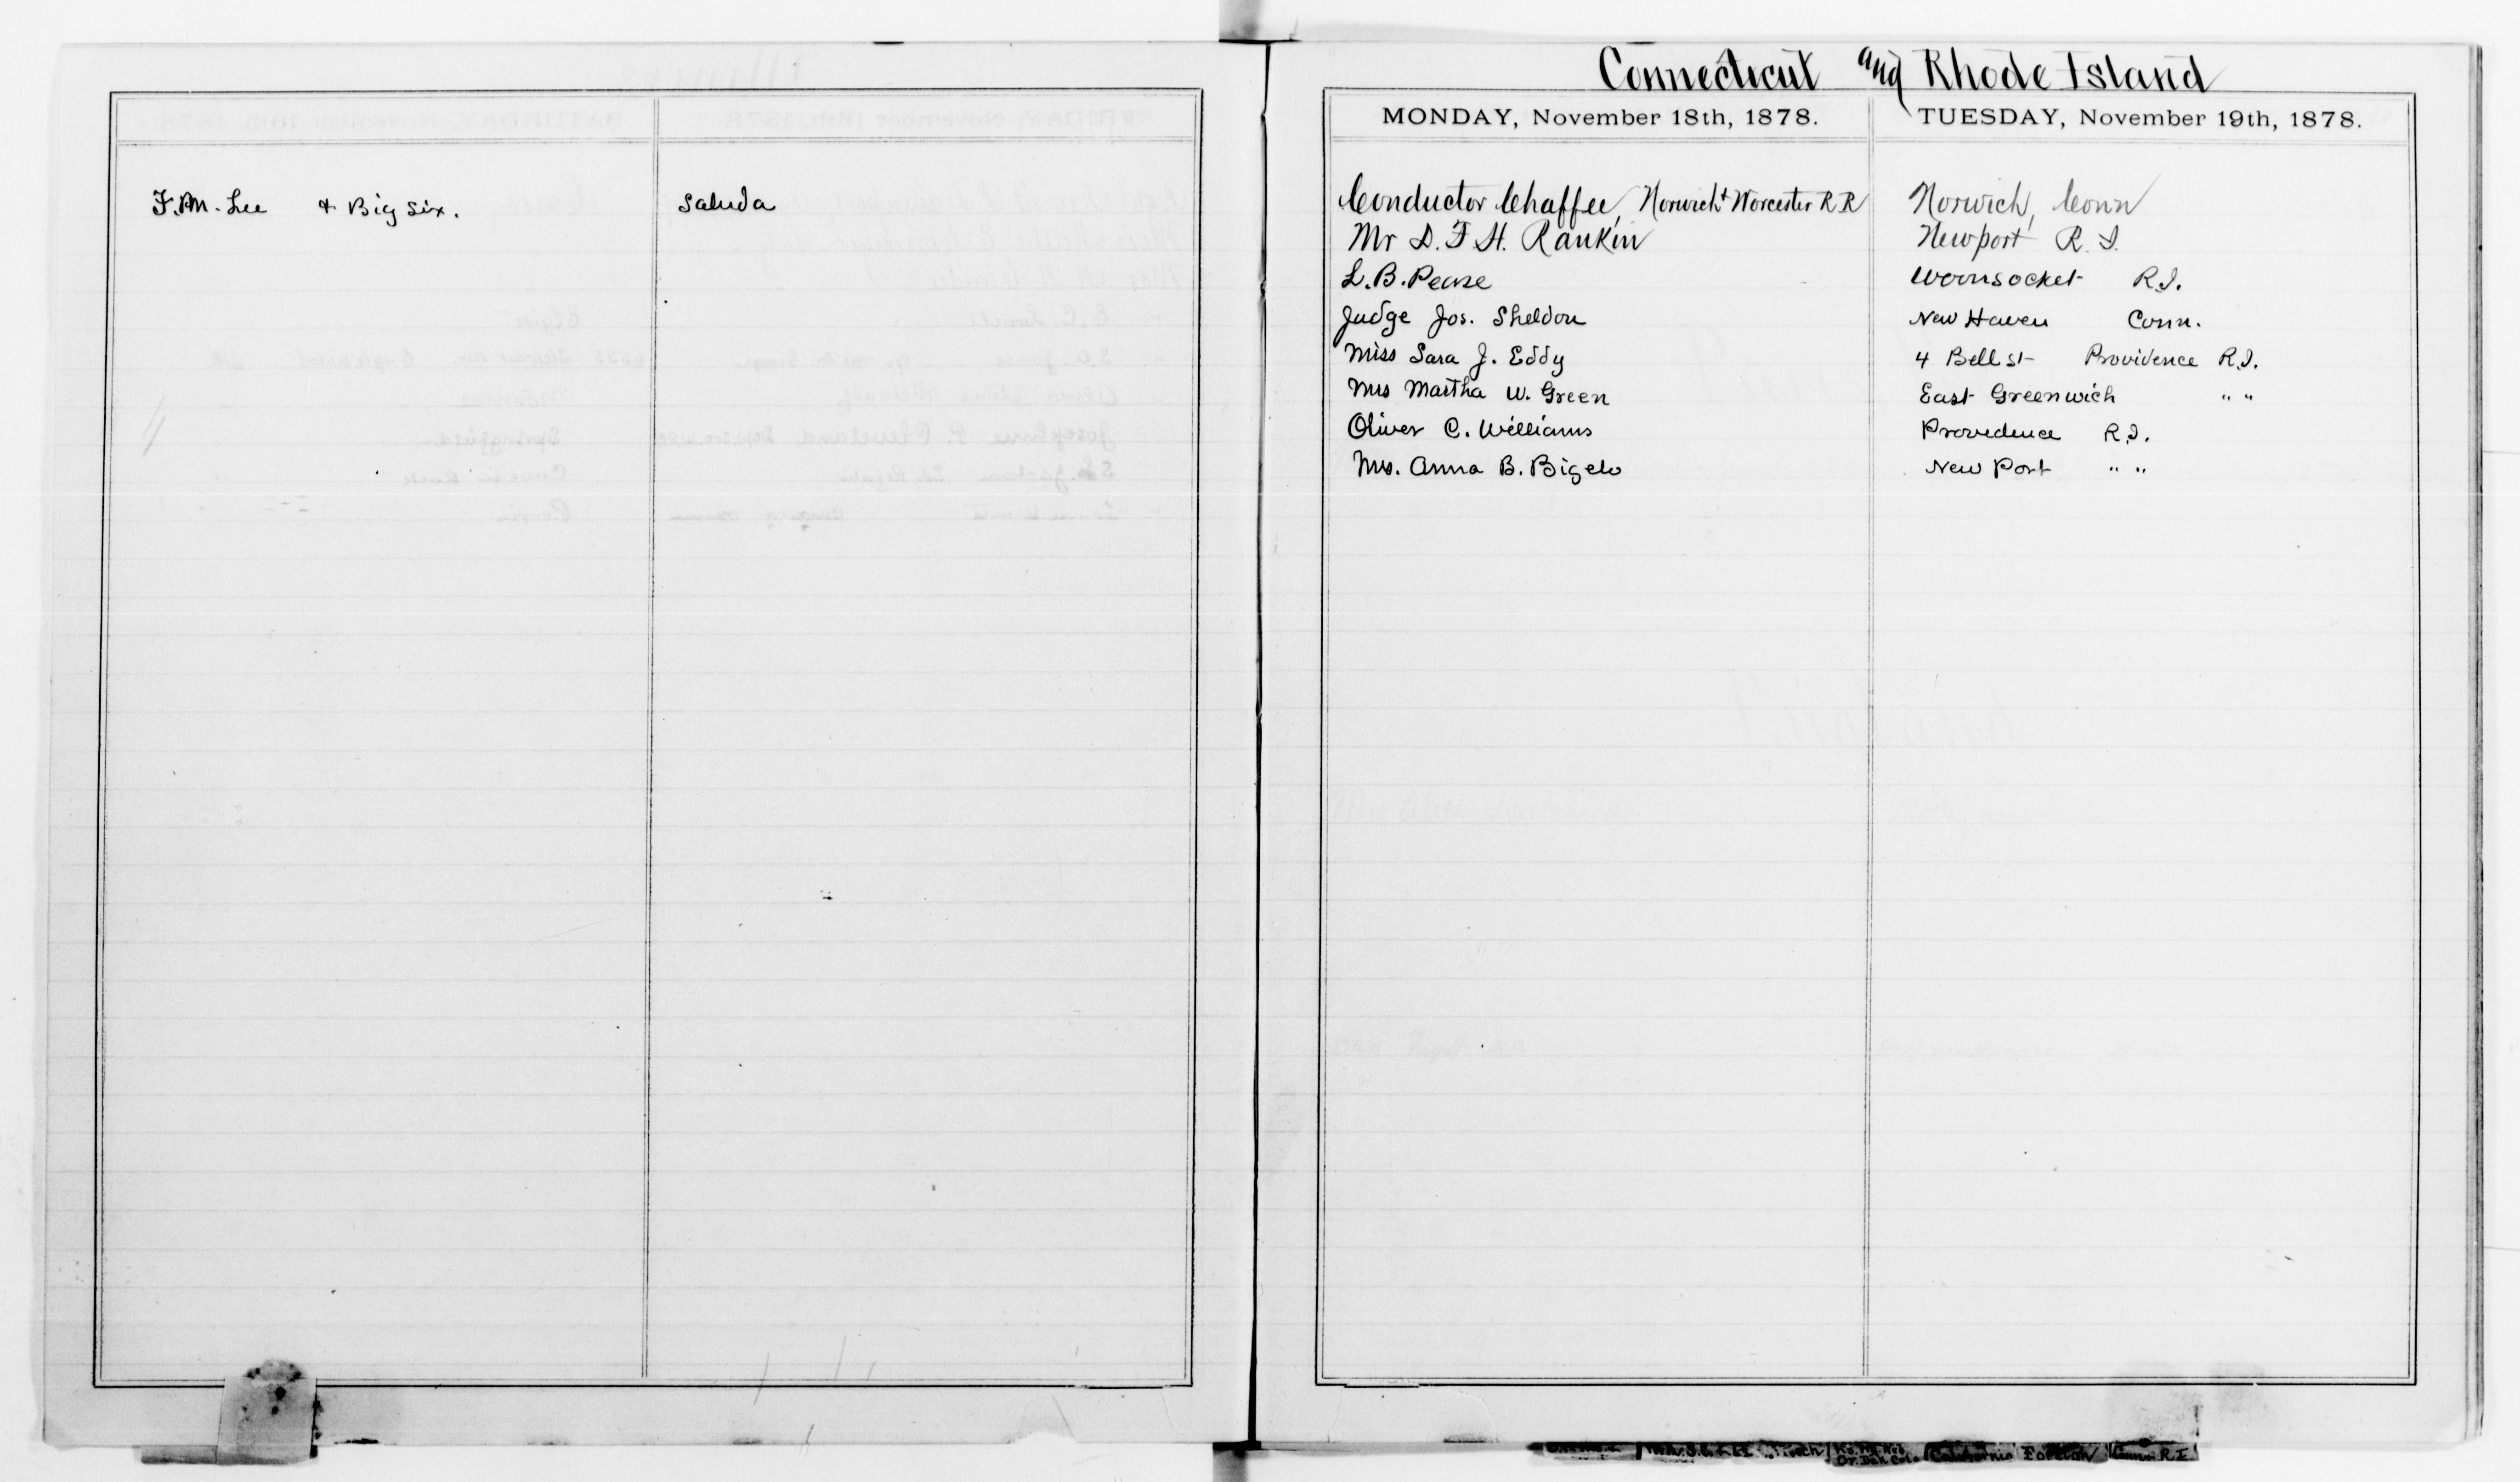 F. M. Lee & Big Six. Saluda
Connecticut and Rhode Island
MONDAY, November 18th, 1878. TUESDAY, November 19th, 1878.
Conductor Chaffee, Norwich & Worcester R R Norwich, Conn
Mr D. F. H. Rankin Newport R. I.
L. B. Pease Woonsocket R.I.
Judge Jos. Sheldon New Haven Conn.
Miss Sara J. Eddy 4 Bell st Providence R.I.
Mrs Martha W. Green East Greenwich " "
Oliver C. Williams Providence R.I.
Mrs. Anna B. Bigelo New Port " "
California Foreign Conn. R.I.